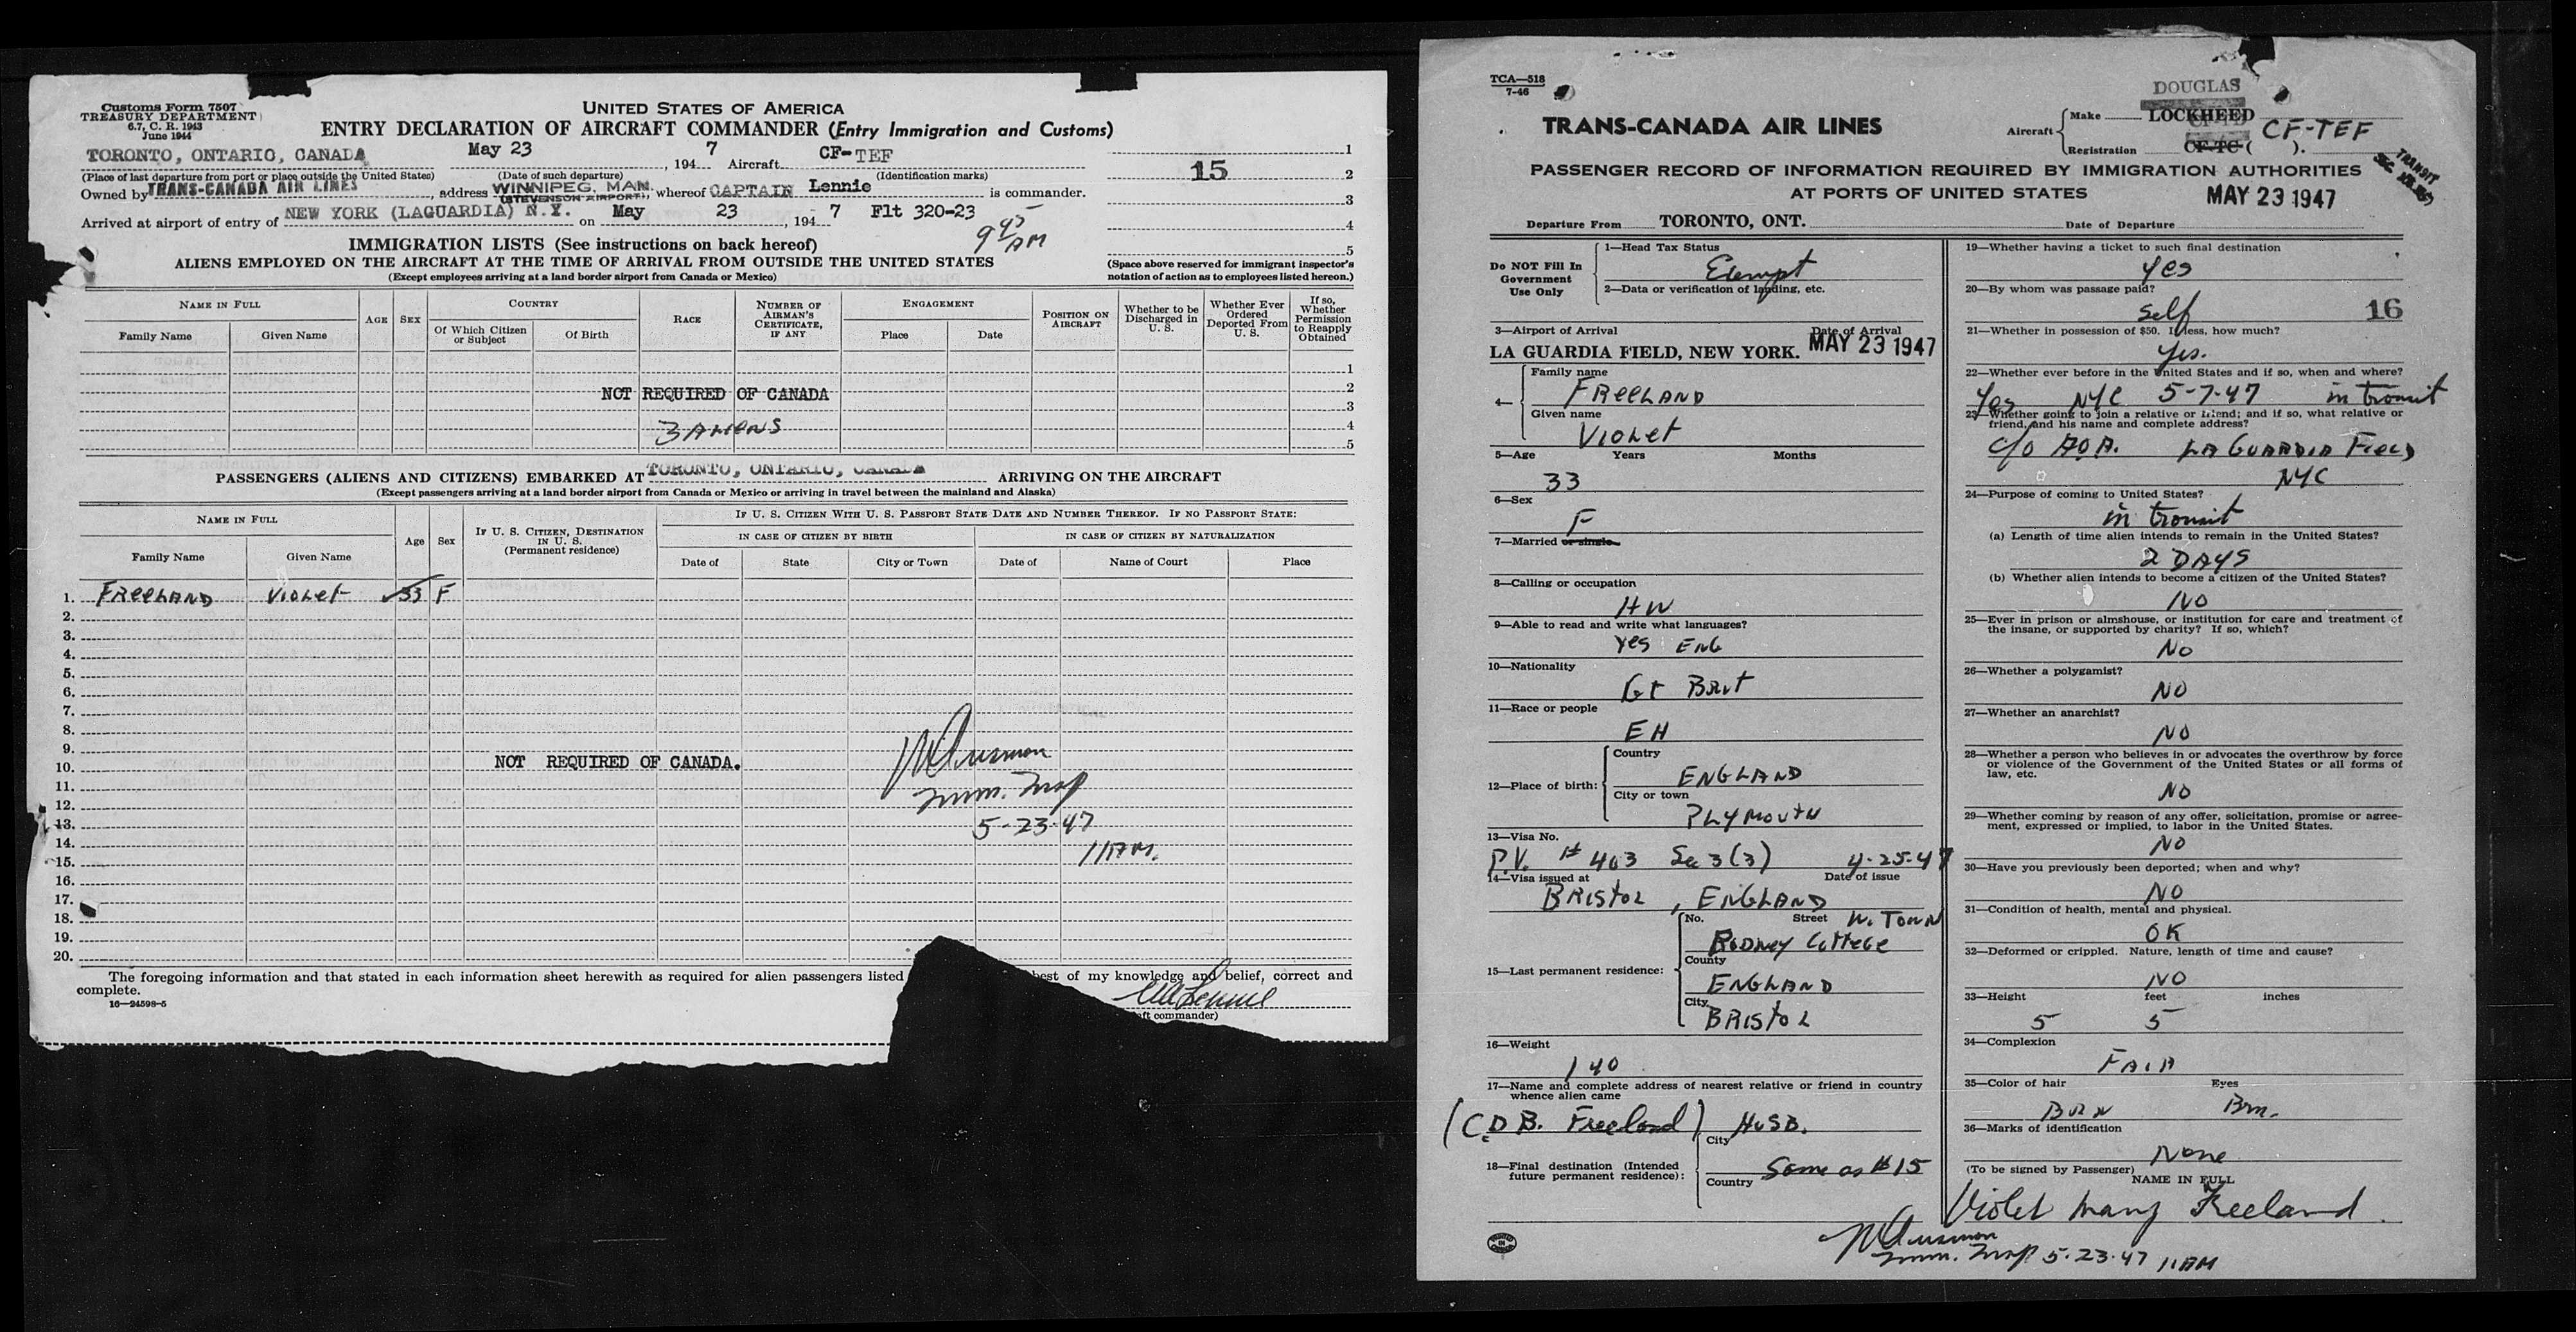 Customs Form 7507
TREASURY DEPARTMENT
6.7, C. R. 1943
June 1944
UNITED STATES OF AMERICA
ENTRY DECLARATION OF AIRCRAFT COMMANDER (Entry Immigration and Customs)
TORONTO, ONTARIO, CANADA May 23, 194 7 Aircraft CF-TEF
(Place of last departure from port or place outside the United States) (Date of such departure) (Identification marks)
Owned by TRANS-CANADA AIR LINES, address WINNIPEG, MAN. (STEVENSON AIRPORT), whereof CAPTAIN Lennie is commander.
Arrived at airport of entry of NEW YORK (LAGUARDIA) N.Y. on May 23, 194 7 Flt 320-23
9 45 AM
1
15
2
3
4
5
(Space above reserved for immigrant inspector's
notation of action as to employees listed hereon.)
IMMIGRATION LISTS (See instructions on back hereof)
ALIENS EMPLOYED ON THE AIRCRAFT AT THE TIME OF ARRIVAL FROM OUTSIDE THE UNITED STATES
(Except employees arriving at a land border airport from Canada or Mexico)
NAME IN FULL
Family Name Given Name
AGE SEX
COUNTRY
Of Which Citizen or Subject Of Birth
RACE
NUMBER OF AIRMAN'S CERTIFICATE, IF ANY
ENGAGEMENT
Place Date
POSITION ON AIRCRAFT
Whether to be Discharged in U. S.
Whether Ever Ordered Deported From U. S.
If so, Whether Permission to Reapply Obtained
1
NOT REQUIRED OF CANADA 2
3
3 ALIENS 4
5
PASSENGERS (ALIENS AND CITIZENS) EMBARKED AT TORONTO, ONTARIO, CANADA ARRIVING ON THE AIRCRAFT
(Except passengers arriving at a land border airport from Canada or Mexico or arriving in travel between the mainland and Alaska)
NAME IN FULL
Family Name Given Name
Age Sex
IF U. S. CITIZEN, DESTINATION IN U. S.
(Permanent residence)
IF U. S. CITIZEN WITH U. S. PASSPORT STATE DATE AND NUMBER THEREOF. IF NO PASSPORT STATE:
IN CASE OF CITIZEN BY BIRTH IN CASE OF CITIZEN BY NATURALIZATION
Date of State City or Town Date of Name of Court Place
1. FREELAND VIOLET 33 F
2.
3.
4.
5.
6.
7.
8.
9.
10. NOT REQUIRED OF CANADA.
11.
12. Imm. Insp
13. 5-23-47
14. 11 AM.
15.
16.
17.
18.
19.
20.
The foregoing information and that stated in each information sheet herewith as required for alien passengers listed best of my knowledge and belief, correct and
complete.
16—24598-5
Lennie
commander)
TCA—518
7-46
TRANS-CANADA AIR LINES
DOUGLAS
Aircraft Make LOCKHEED
Registration CF-TC ( ). CF-TEF
PASSENGER RECORD OF INFORMATION REQUIRED BY IMMIGRATION AUTHORITIES
AT PORTS OF UNITED STATES
TRANSIT
MAY 23 1947
Departure From TORONTO, ONT. Date of Departure
Do NOT Fill In
Government
Use Only
1—Head Tax Status
Exempt
2—Data or verification of landing, etc.
3—Airport of Arrival Date of Arrival
LA GUARDIA FIELD, NEW YORK. MAY 23 1947
4—
Family name
FREELAND
Given name
VIOLET
5—Age Years Months
33
6—Sex
F
7—Married or single
8—Calling or occupation
HW
9—Able to read and write what languages?
Yes ENG
10—Nationality
Gt Brit
11—Race or people
EH
12—Place of birth:
Country
ENGLAND
City or town
PLYMOUTH
13—Visa No.
P.V. # 403 Sec 3(3) 4-25-47
14—Visa issued at Date of issue
BRISTOL, ENGLAND
15—Last permanent residence:
No. Street W. TOWN
RODNEY COTTEGE
County
ENGLAND
City
BRISTOL
16—Weight
140
17—Name and complete address of nearest relative or friend in country
whence alien came
(C.D B. Freeland) HUSB.
18—Final destination (Intended
future permanent residence):
City
Same as # 15
Country
19—Whether having a ticket to such final destination
Yes
20—By whom was passage paid?
Self
16
21—Whether in possession of $50. If less, how much?
Yes.
22—Whether ever before in the United States and if so, when and where?
Yes NYC 5-7-47 in transit
23—Whether going to join a relative or friend; and if so, what relative or
friend, and his name and complete address?
c/o AOA. LA GUARDIA FIELD
NYC
24—Purpose of coming to United States?
in transit
(a) Length of time alien intends to remain in the United States?
2 DAYS
(b) Whether alien intends to become a citizen of the United States?
NO
25—Ever in prison or almshouse, or institution for care and treatment of
the insane, or supported by charity? If so, which?
No
26—Whether a polygamist?
NO
27—Whether an anarchist?
NO
28—Whether a person who believes in or advocates the overthrow by force
or violence of the Government of the United States or all forms of
law, etc.
NO
29—Whether coming by reason of any offer, solicitation, promise or agree-
ment, expressed or implied, to labor in the United States.
NO
30—Have you previously been deported; when and why?
NO
31—Condition of health, mental and physical.
OK
32—Deformed or crippled. Nature, length of time and cause?
NO
33—Height feet inches
5 5
34—Complexion
FAIR
35—Color of hair Eyes
BRN Brn.
36—Marks of identification
None
(To be signed by Passenger)
NAME IN FULL
Violet Mary Freeland
Imm. Insp 5-23-47 11 AM